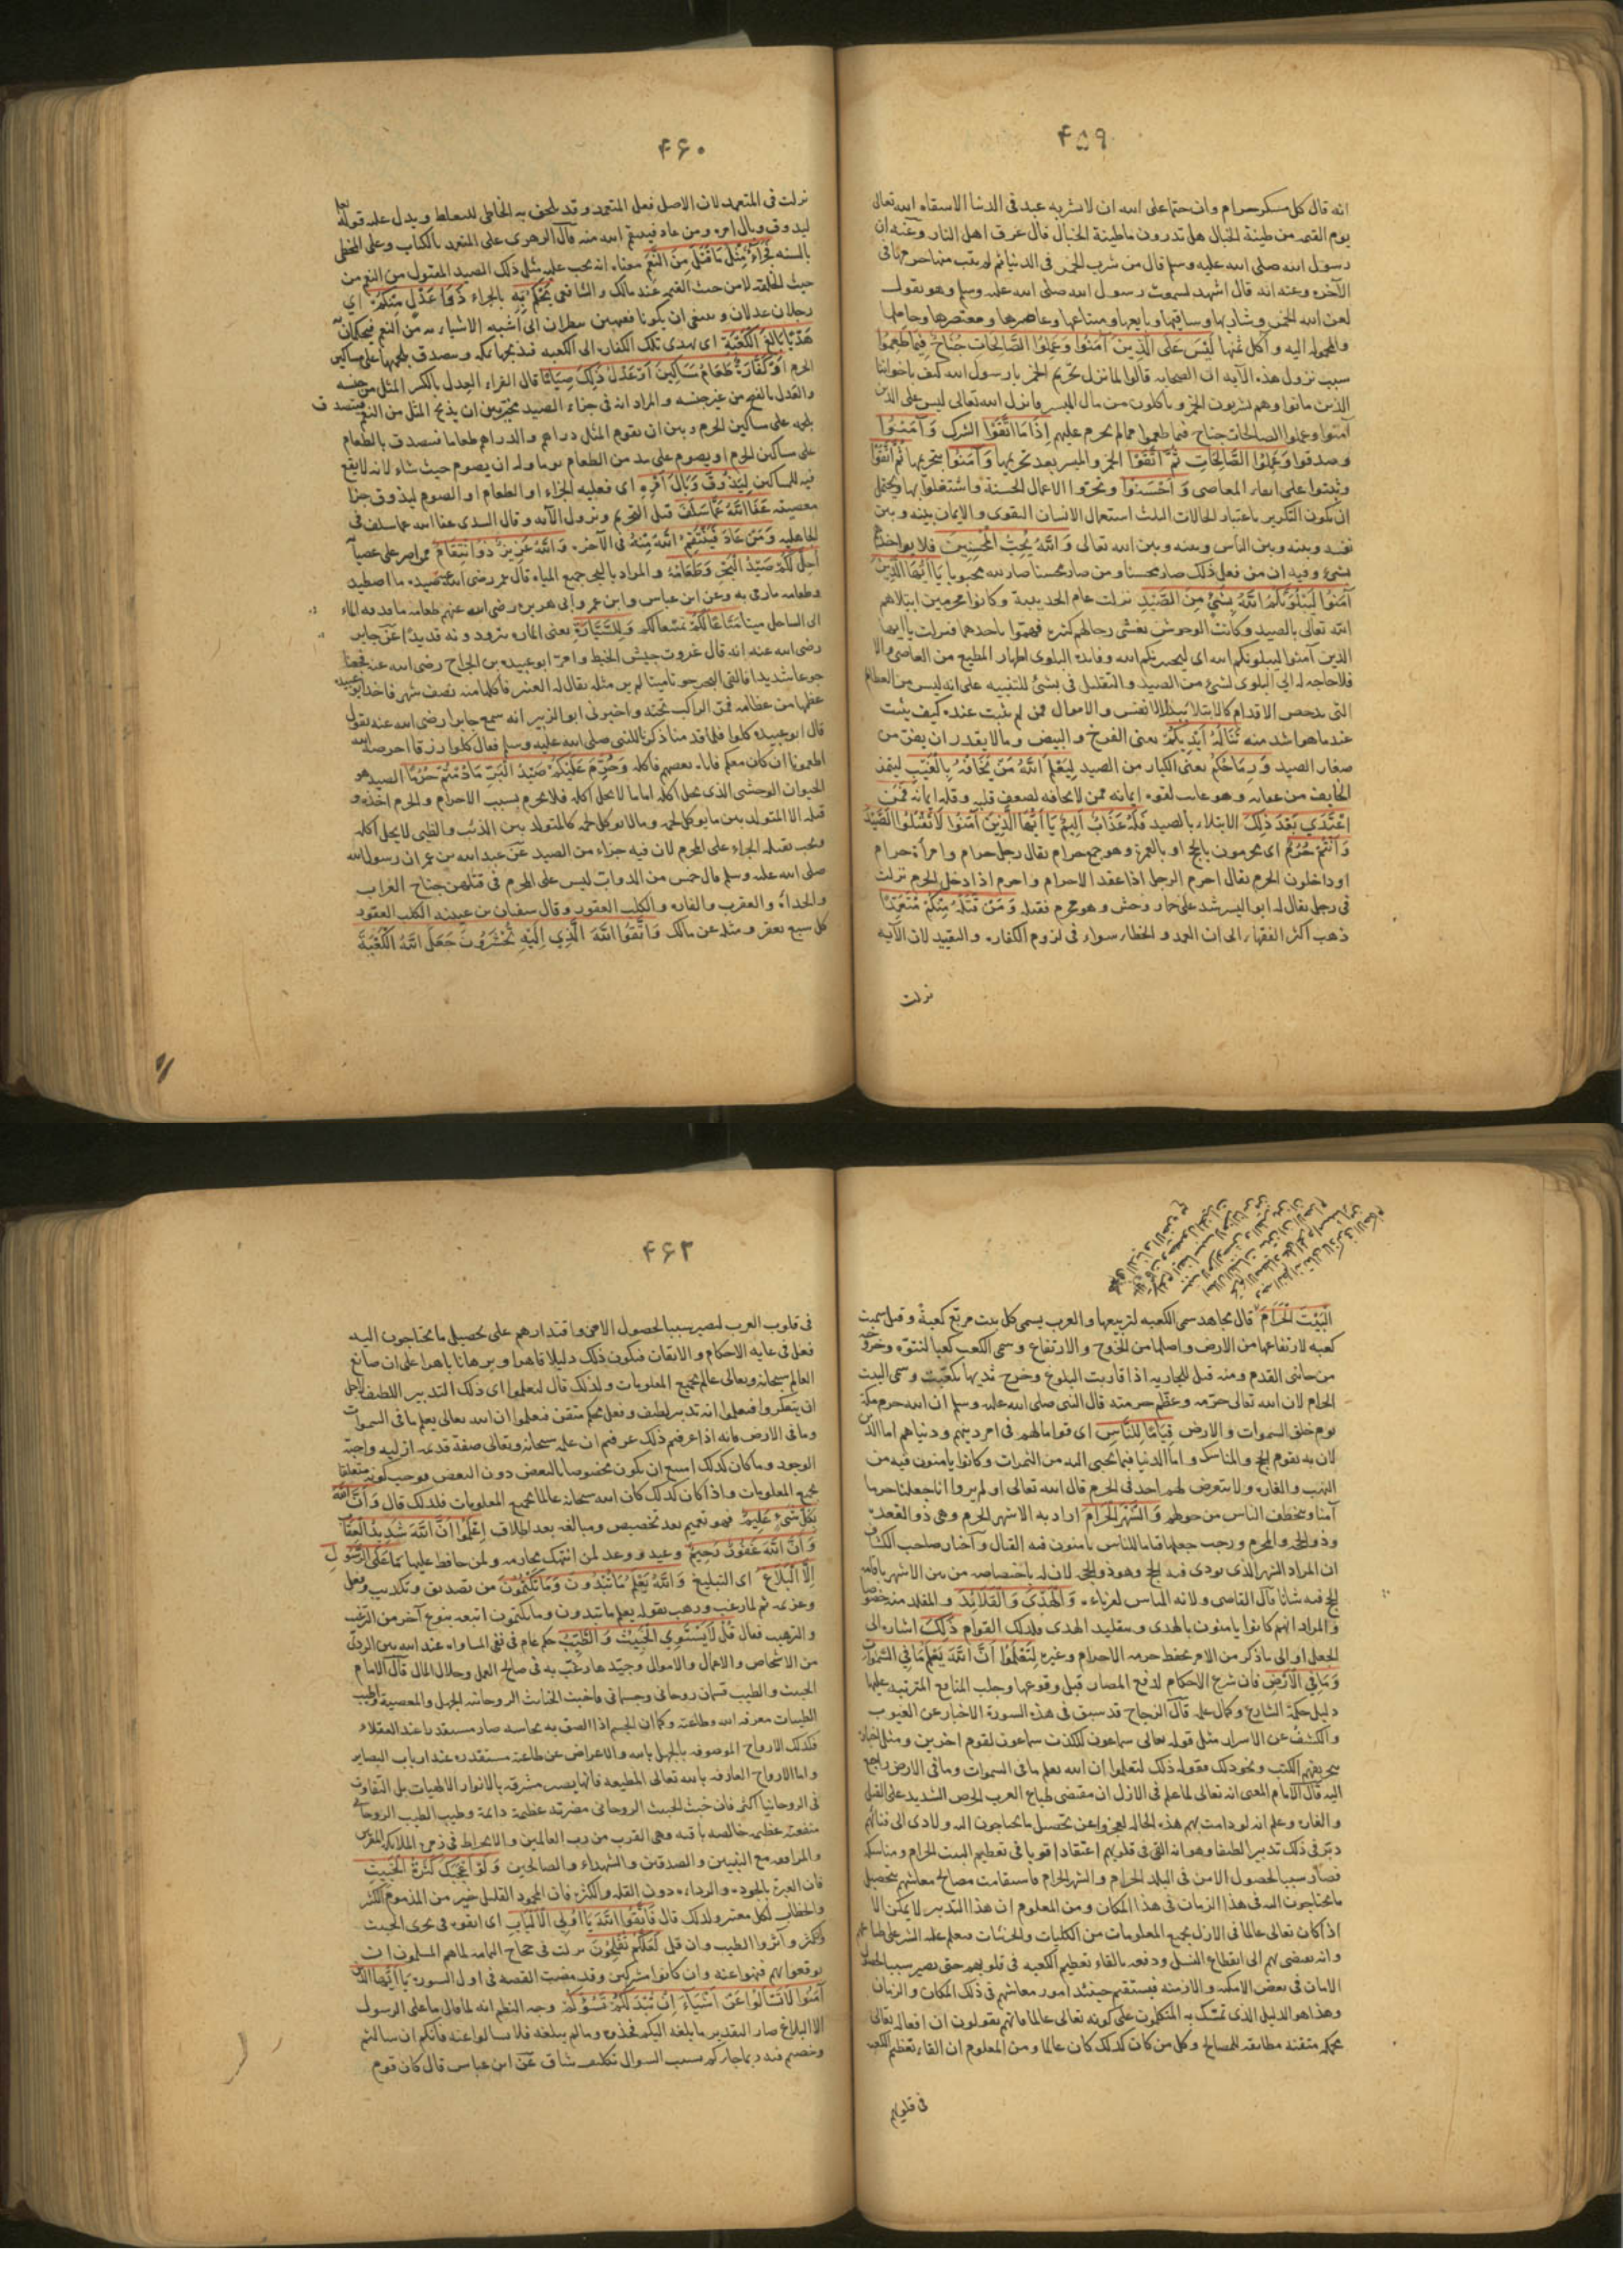 ۴۵۹
انه قال كل مسكر حرام وان حتما على الله ان لا يشربه عبد فى الدنيا الا سقاه الله تعالى
يوم القيمه من طينة الخبال هل تدرون ما طينة الخبال قال عرق اهل النار وعنه ان
رسول الله صلى الله عليه وسلم قال من شرب الخمر فى الدنيا ثم لم يتب منها حرمها فى
الآخره وعنه انه قال اشهد لسمعت رسول الله صلى الله عليه وسلم وهو يقول
لعن الله الخمر وشاربها وساقيها وبايعها ومبتاعها وعاصرها ومعتصرها وحاملها
والمحموله اليه وآكل ثمنها لَيْسَ عَلَى الَّذِينَ آمَنُوا وَعَمِلُوا الصَّالِحَاتِ جُنَاحٌ فِيمَا طَعِمُوا
سبب نزول هذه الآيه ان الصحابه قالوا لما نزل تحريم الخمر يا رسول الله كيف باخواننا
الذين ماتوا وهم يشربون الخمر وياكلون من مال الميسر فانزل الله تعالى ليس على الذين
آمنوا وعملوا الصالحات جناح فيما طعموا مما لم يحرم عليهم إِذَا مَا اتَّقَوْا الشرك وَآمَنُوا
وصدقوا وَعَمِلُوا الصَّالِحَاتِ ثُمَّ اتَّقَوْا الخمر والميسر بعد تحريمها وَآمَنُوا بتحريمها ثُمَّ اتَّقَوْا
وثبتوا على اتقاء المعاصى وَأَحْسَنُوا وتحروا الاعمال الحسنة واشتغلوا بها ويحتمل
ان يكون التكرير باعتبار الحالات الثلث استعمال الانسان التقوى والايمان بينه وبين
نفسه وبينه وبين الناس وبينه وبين الله تعالى وَاللَّهُ يُحِبُّ الْمُحْسِنِينَ فلا يواخذهم
بشئ وفيه ان من فعل ذلك صار محسنا ومن صار محسنا صار لله محبوبا يَا أَيُّهَا الَّذِينَ
آمَنُوا لَيَبْلُوَنَّكُمُ اللَّهُ بِشَيْءٍ مِنَ الصَّيْدِ نزلت عام الحديبية وكانوا محرمين ابتلاهم
الله تعالى بالصيد وكانت الوحوش تغشى رحالهم كثره فهموا باخذها فنزلت يا ايها
الذين آمنوا ليبلونكم الله اى ليختبرنكم الله وفائده البلوى اظهار المطيع من العاصى والا
فلا حاجه له الى البلوى بشئ من الصيد والتقليل فى بشئ للتنبيه على انه ليس من العظائم
التى تدحض الاقدام كالابتلاء ببذل الانفس والاموال فمن لم يثبت عنده كيف يثبت
عند ما هو اشد منه تَنَالُهُ أَيْدِيكُمْ يعنى الفرخ والبيض وما لا يقدر ان يفر من
صغار الصيد وَرِمَاحُكُمْ يعنى الكبار من الصيد لِيَعْلَمَ اللَّهُ مَنْ يَخَافُهُ بِالْغَيْبِ ليتميز
الخايف من عقابه وهو غائب لقوة ايمانه ممن لا يخافه لضعف قلبه وقلة ايمانه فَمَنِ
اعْتَدَى بَعْدَ ذَلِكَ الابتلاء بالصيد فَلَهُ عَذَابٌ أَلِيمٌ يَا أَيُّهَا الَّذِينَ آمَنُوا لَا تَقْتُلُوا الصَّيْدَ
وَأَنْتُمْ حُرُمٌ اى محرمون بالحج او بالعمرة وهو جمع حرام يقال رجل حرام وامرأة حرام
او داخلون الحرم يقال احرم الرجل اذا عقد الاحرام واحرم اذا دخل الحرم نزلت
فى رجل يقال له ابو اليسر شد على حمار وحش وهو محرم فقتله وَمَنْ قَتَلَهُ مِنْكُمْ مُتَعَمِّدًا
ذهب اكثر الفقهاء الى ان العمد والخطاء سواء فى لزوم الكفاره والتقييد لان الآيه
نزلت
۴۶۰
نزلت فى المتعمد لان الاصل فعل المتعمد وقد يلحق به الخاطى للتغليظ ويدل عليه قوله تعالى
ليذوق وبال امره ومن عاد فينتقم الله منه قال الزهرى على المتعمد بالكتاب وعلى المخطى
بالسنه فَجَزَاءٌ مِثْلُ مَا قَتَلَ مِنَ النَّعَمِ معناه انه يجب عليه مثل ذلك الصيد المقتول من النعم من
حيث الخلقه لا من حيث القيمه عند مالك والشافعى يَحْكُمُ بِهِ بالجزاء ذَوَا عَدْلٍ مِنْكُمْ اى
رجلان عدلان وينبغى ان يكونا فقيهين ينظران الى اشبه الاشياء به من النعم فيحكمان به
هَدْيًا بَالِغَ الْكَعْبَةِ اى يهدى تلك الكفاره الى الكعبه فيذبحها بمكه ويتصدق بلحمها على مساكين
الحرم أَوْ كَفَّارَةٌ طَعَامُ مَسَاكِينَ أَوْ عَدْلُ ذَلِكَ صِيَامًا قال الفراء العدل بالكسر المثل من جنسه
والعدل بالفتح من غير جنسه والمراد انه فى جزاء الصيد مخير بين ان يذبح المثل من النعم فيتصدق
بلحمه على مساكين الحرم وبين ان يقوم المثل دراهم والدراهم طعاما فيتصدق بالطعام
على مساكين الحرم او يصوم على مد من الطعام يوما وله ان يصوم حيث شاء لانه لا نفع
فيه للمساكين لِيَذُوقَ وَبَالَ أَمْرِهِ اى فعليه الجزاء او الطعام او الصوم ليذوق جزاء
معصيته عَفَا اللَّهُ عَمَّا سَلَفَ قبل التحريم ونزول الآيه وقال السدى عفا الله عما سلف فى
الجاهليه وَمَنْ عَادَ فَيَنْتَقِمُ اللَّهُ مِنْهُ فى الآخره وَاللَّهُ عَزِيزٌ ذُو انْتِقَامٍ ممن اصر على عصيانه
أُحِلَّ لَكُمْ صَيْدُ الْبَحْرِ وَطَعَامُهُ والمراد بالبحر جميع المياه قال عمر رضى الله عنه صيده ما اصطيد
وطعامه ما رمى به وعن ابن عباس وابن عمر وابى هريره رضى الله عنهم طعامه ما قذفه الماء
الى الساحل ميتا مَتَاعًا لَكُمْ تمتيعا لكم وَلِلسَّيَّارَةِ يعنى الماره يتزودونه قديدا عن جابر
رضى الله عنه انه قال غزوت جيش الخبط وامر ابو عبيده بن الجراح رضى الله عنه فجعنا
جوعا شديدا فالقى البحر حوتا ميتا لم ير مثله يقال له العنبر فاكلنا منه نصف شهر فاخذ ابو عبيده
عظما من عظامه فمر الراكب تحته واخبرنى ابو الزبير انه سمع جابرا رضى الله عنه يقول
قال ابو عبيده كلوا فلما قدمنا ذكرنا للنبى صلى الله عليه وسلم فقال كلوا رزقا اخرجه الله
اطعمونا ان كان معكم فاتاه بعضهم فاكله وَحُرِّمَ عَلَيْكُمْ صَيْدُ الْبَرِّ مَا دُمْتُمْ حُرُمًا الصيد هو
الحيوان الوحشى الذى يحل اكله اما ما لا يحل اكله فلا يحرم بسبب الاحرام والحرم اخذه و
قتله الا المتولد بين ما يوكل لحمه وما لا يوكل لحمه كالمتولد بين الذئب والظبى لا يحل اكله
ويجب بقتله الجزاء على المحرم لان فيه جزاء من الصيد عن عبد الله بن عمر ان رسول الله
صلى الله عليه وسلم قال خمس من الدواب ليس على المحرم فى قتلهن جناح الغراب
والحدأة والعقرب والفاره والكلب العقور وقال سفيان بن عيينه الكلب العقور
كل سبع يعقر ومثله عن مالك وَاتَّقُوا اللَّهَ الَّذِي إِلَيْهِ تُحْشَرُونَ جَعَلَ اللَّهُ الْكَعْبَةَ
الْبَيْتَ الْحَرَامَ قال مجاهد سمى الكعبه لتربيعها والعرب يسمى كل بيت مربع كعبة وقيل سميت
كعبه لارتفاعها من الارض واصلها من الخروج والارتفاع وسمى الكعب كعبا لنتوه وخروجه
من جانبى القدم ومنه قيل للجاريه اذا قاربت البلوغ وخرج ثديها تكعبت وسمى البيت
الحرام لان الله تعالى حرمه وعظم حرمته قال النبى صلى الله عليه وسلم ان الله حرم مكة
يوم خلق السموات والارض قِيَامًا لِلنَّاسِ اى قواما لهم فى امر دينهم ودنياهم اما الدين
لان به يقوم الحج والمناسك واما الدنيا فيما يجبى اليه من الثمرات وكانوا يامنون فيه من
النهب والغاره ولا يتعرض لهم احد فى الحرم قال الله تعالى اولم يروا انا جعلنا حرما
آمنا ويتخطف الناس من حولهم وَالشَّهْرَ الْحَرَامَ اراد به الاشهر الحرم وهى ذو القعده
وذو الحجه والمحرم ورجب جعلها قياما للناس يامنون فيه القتال واختار صاحب الكشاف
ان المراد الشهر الذى يودى فيه الحج وهو ذو الحجه لان له باختصاصه من بين الاشهر باقامه
الحج فيه شانا قال القاضى ولانه المناسب لقرنائه وَالْهَدْيَ وَالْقَلَائِدَ والمقلد منه خصوصا
والمراد انهم كانوا يامنون بالهدى وبتقليد الهدى فلذلك القوام ذَلِكَ اشاره الى
الجعل او الى ما ذكر من الامر بحفظ حرمه الاحرام وغيره لِتَعْلَمُوا أَنَّ اللَّهَ يَعْلَمُ مَا فِي السَّمَوَاتِ
وَمَا فِي الْأَرْضِ فان شرع الاحكام لدفع المضار قبل وقوعها وجلب المنافع المترتبه عليها
دليل حكمة الشارع وكمال علمه قال الزجاج قد سبق فى هذه السورة الاخبار عن الغيوب
والكشف عن الاسرار مثل قوله تعالى سماعون للكذب سماعون لقوم آخرين ومثل اخباره
بتحريفهم الكتب ونحو ذلك فقوله ذلك لتعلموا ان الله يعلم ما فى السموات وما فى الارض راجع
اليه قال الامام المعنى انه تعالى لما علم فى الازل ان مقتضى طباع العرب الحرص الشديد على القتل
والغاره وعلم انه لو دامت بهم هذه الحاله لعجزوا عن تحصيل ما يحتاجون اليه ولادى الى فنائهم
دبر فى ذلك تدبيرا لطيفا وهو انه القى فى قلوبهم اعتقادا قويا فى تعظيم البيت الحرام ومناسكه
فصار سببا لحصول الامن فى البلد الحرام والشهر الحرام فاستقامت مصالح معاشهم بتحصيل
ما يحتاجون اليه فى هذا الزمان فى هذا المكان ومن المعلوم ان هذا التدبير لا يمكن الا
اذا كان تعالى عالما فى الازل بجميع المعلومات من الكليات والجزئيات فيعلم غلبه الشر على طباعهم
وانه يفضى بهم الى انقطاع النسل ودفعه بالقاء تعظيم الكعبه فى قلوبهم حتى يصير سببا لحصول
الامان فى بعض الامكنه والازمنه فيستقيم حينئذ امور معاشهم فى ذلك المكان والزمان
وهذا هو الدليل الذى تمسك به المتكلمون على كونه تعالى عالما فانهم يقولون ان افعاله تعالى
محكمه متقنه مطابقه للمصالح وكل من كان كذلك كان عالما ومن المعلوم ان القاء تعظيم الكعبه
فى قلوبهم
۴۶۲
فى قلوب العرب لتصير سببا لحصول الامن واقتدارهم على تحصيل ما يحتاجون اليه
فعل فى غايه الاحكام والاتقان فيكون ذلك دليلا قاهرا وبرهانا باهرا على ان صانع
العالم سبحانه وتعالى عالم بجميع المعلومات ولذلك قال لتعلموا اى ذلك التدبير اللطيف لاجل
ان يتفكروا فيعلموا انه تدبير لطيف وفعل محكم متقن فيعلموا ان الله تعالى يعلم ما فى السموات
وما فى الارض فانه اذا عرفتم ذلك عرفتم ان علمه سبحانه وتعالى صفة قديمه ازليه واجبة
الوجود وما كان كذلك امتنع ان يكون مخصوصا بالبعض دون البعض فوجب كونه متعلقا
بجميع المعلومات واذا كان كذلك كان الله سبحانه عالما بجميع المعلومات فلذلك قال وَأَنَّ اللَّهَ
بِكُلِّ شَيْءٍ عَلِيمٌ فهو تعميم بعد تخصيص ومبالغه بعد اطلاق اعْلَمُوا أَنَّ اللَّهَ شَدِيدُ الْعِقَابِ
وَأَنَّ اللَّهَ غَفُورٌ رَحِيمٌ وعيد ووعد لمن انتهك محارمه ولمن حافظ عليها مَا عَلَى الرَّسُولِ
إِلَّا الْبَلَاغُ اى التبليغ وَاللَّهُ يَعْلَمُ مَا تُبْدُونَ وَمَا تَكْتُمُونَ من تصديق وتكذيب وفعل
وعزيمه ثم لما رغب ورهب بقوله يعلم ما تبدون وما تكتمون اتبعه بنوع آخر من الترغيب
والترهيب فقال قُلْ لَا يَسْتَوِي الْخَبِيثُ وَالطَّيِّبُ حكم عام فى نفى المساواه عند الله بين الردى
من الاشخاص والاعمال والاموال وجيدها رغب به فى صالح العمل وحلال المال قال الامام
الخبيث والطيب قسمان روحانى وجسمانى فاخبث الخبائث الروحانيه الجهل والمعصية واطيب
الطيبات معرفه الله وطاعته وكما ان الجسم اذا التصق به نجاسه صار مستقذرا عند العقلاء
فكذلك الارواح الموصوفه بالجهل بالله والاعراض عن طاعته مستقذره عند ارباب البصاير
واما الارواح العارفه بالله تعالى المطيعه فانها يصير مشرقه بالانوار الالهيات بل التفاوت
فى الروحانيا اكثر فان خبث الخبيث الروحانى مضرته عظيمة دائمة وطيب الطيب الروحانى
منفعته عظيمه خالصه باقيه وهى القرب من رب العالمين والانخراط فى زمره الملائكه المقربين
والمرافقه مع النبيين والصديقين والشهداء والصالحين وَلَوْ أَعْجَبَكَ كَثْرَةُ الْخَبِيثِ
فان العبرة بالجوده والرداءه دون القله والكثره فان المحمود القليل خير من المذموم الكثير
والخطاب لكل معتبر ولذلك قال فَاتَّقُوا اللَّهَ يَا أُولِي الْأَلْبَابِ اى اتقوه فى تحرى الخبيث
وان كثر وآثروا الطيب وان قل لَعَلَّكُمْ تُفْلِحُونَ نزلت فى حجاج اليمامه لما هم المسلمون ان
يوقعوا بهم فنهوا عنه وان كانوا مشركين وقد مضت القصه فى اول السوره يَا أَيُّهَا الَّذِينَ
آمَنُوا لَا تَسْأَلُوا عَنْ أَشْيَاءَ إِنْ تُبْدَ لَكُمْ تَسُؤْكُمْ وجه النظم انه لما قال ما على الرسول
الا البلاغ صار التقدير ما بلغه اليكم فخذوه وما لم يبلغه فلا تسالوا عنه فانكم ان سالتم
وخضتم فيه ربما جاءكم بسبب السوال تكليف شاق عن ابن عباس قال كان قوم